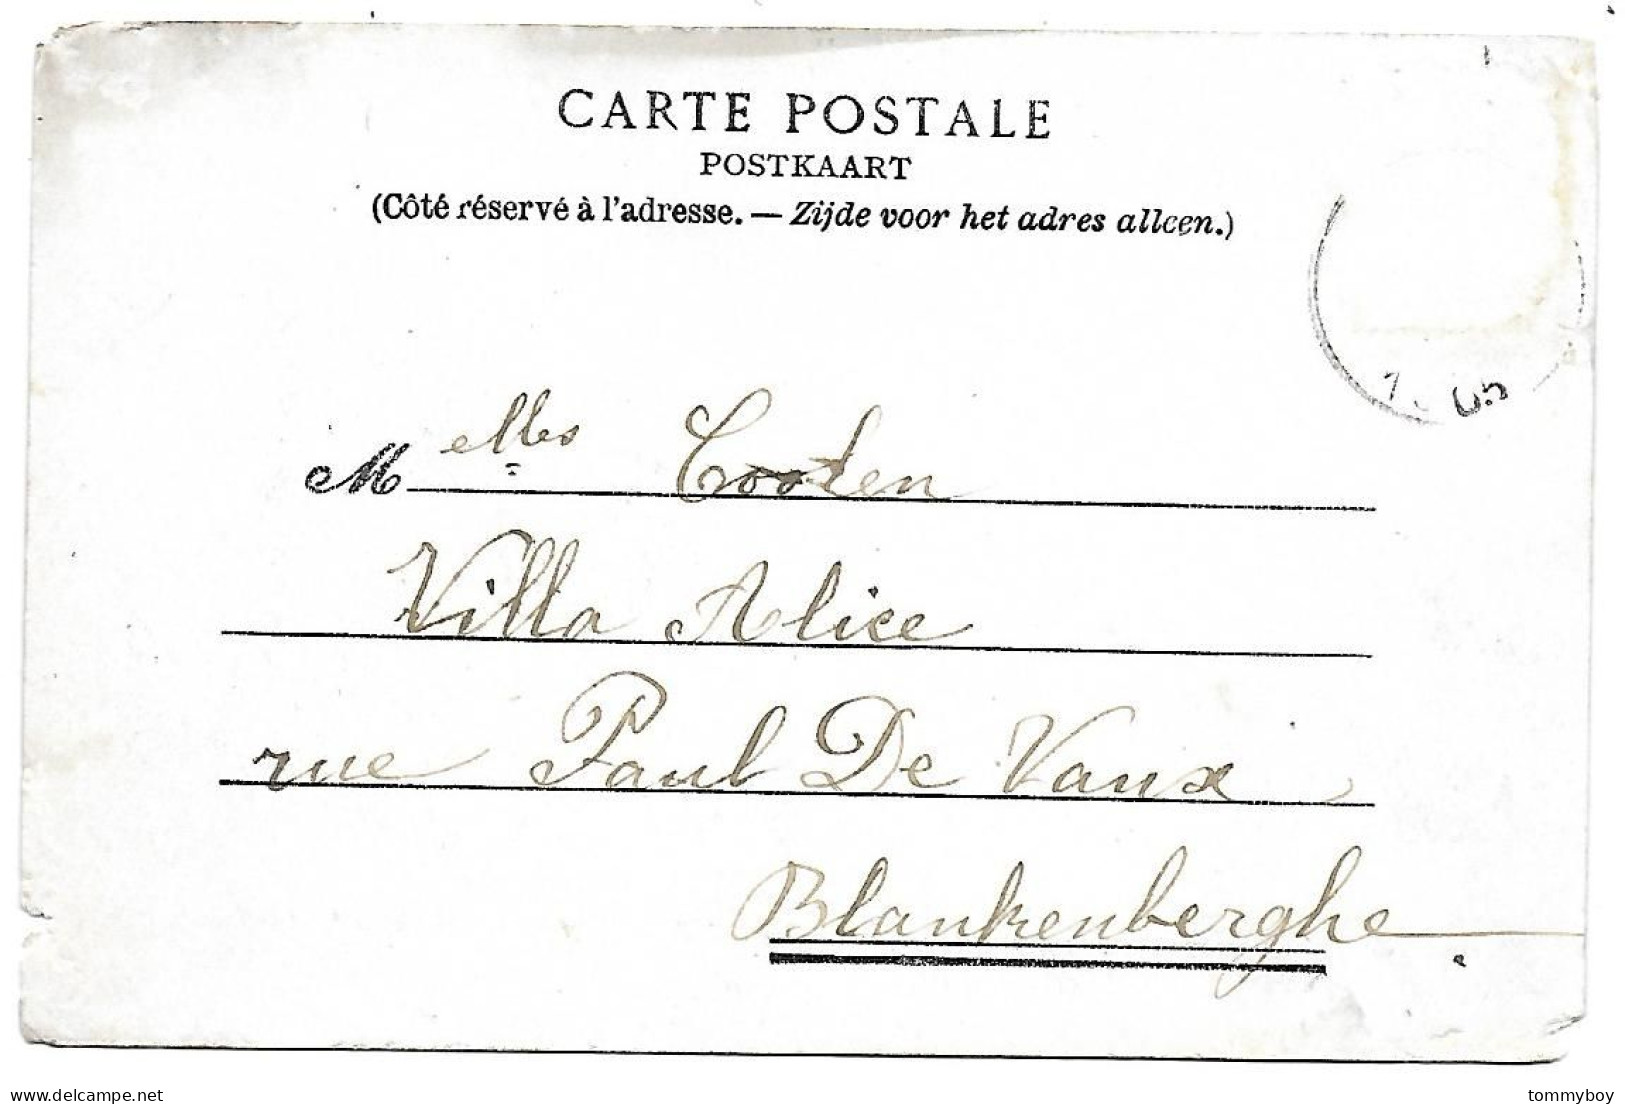 CARTE POSTALE
POSTKAART
(Côté réservé à l'adresse. — Zijde voor het adres alleen.)
Melles Cooten
Villa Alice
rue Paul De Vaux
Blankenberghe
delcampe.net
tommyboy